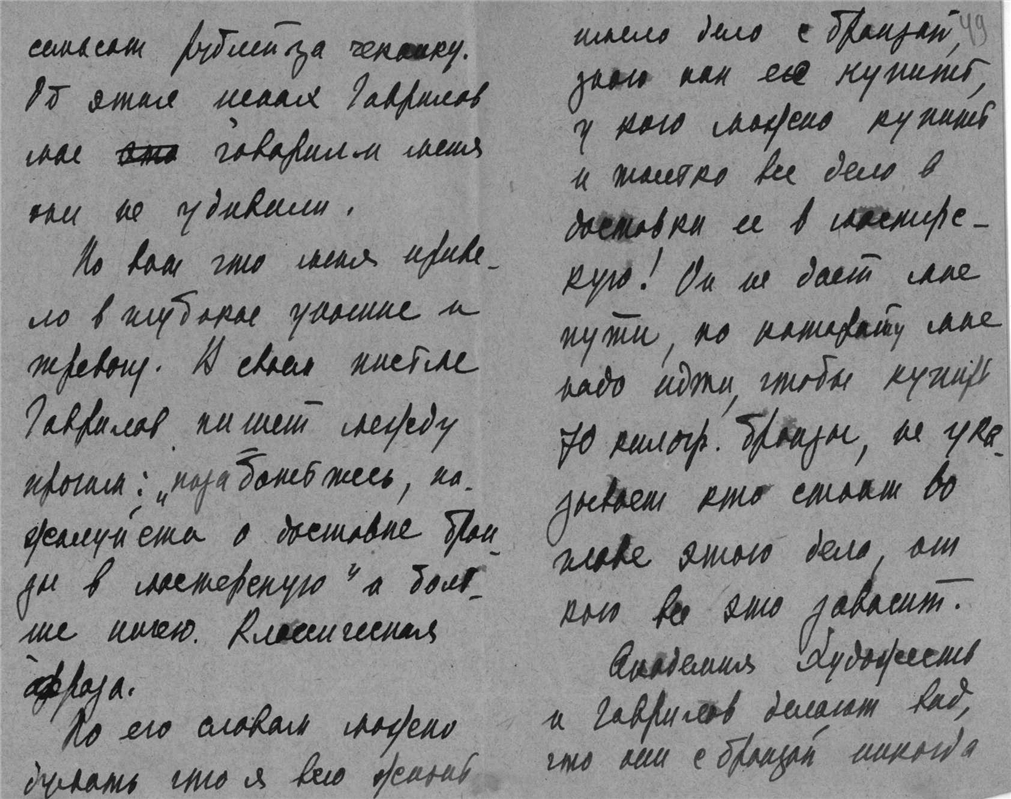 семьсот рублей за чеканку.
Об этом целая Гаврилов
мне говорили меня
они не убивали.
Но вот что меня приве-
ло в глубокое уныние и
тревогу. В своем письме
Гаврилов пишет между
прочим: „позаботьтесь, по-
жалуйста о доставке брон-
зы в мастерскую" и боль-
ше ничего. Классическая
фраза.
По его словам можно
думать что я всю жизнь
имела дело с бронзой,
49
знаю как ее купить,
у кого можно купить
и только все дело в
доставки ее в мастерс-
кую! Он не дает мне
пути, по которому мне
надо идти, чтобы купить
70 килогр. бронзы, не ука-
зывает кто стоит во
главе этого дела, от
кого все это зависит.
Академия Художеств
и Гаврилов делают вид,
что они с бронзой никогда